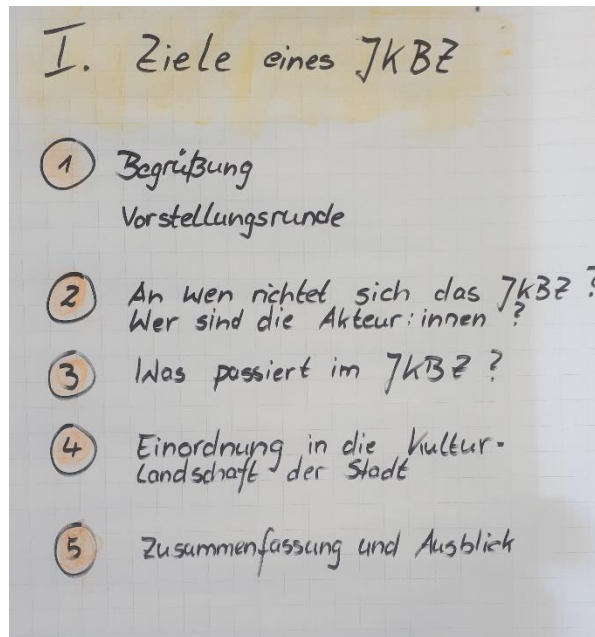 I. Ziele eines JKBZ
1 Begrüßung
Vorstellungsrunde
2 An wen richtet sich das JKBZ ?
Wer sind die Akteur:innen ?
3 Was passiert im JKBZ ?
4 Einordnung in die Kultur-
Landschaft der Stadt
5 Zusammenfassung und Ausblick